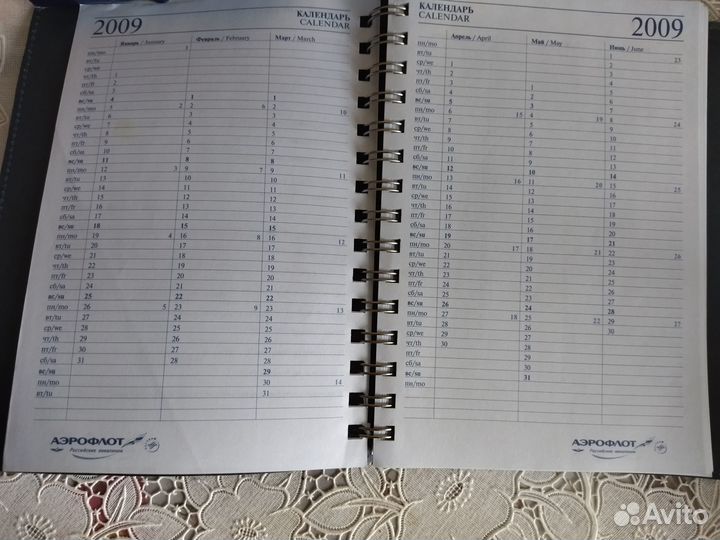 2009
КАЛЕНДАРЬ
CALENDAR
Январь / January Февраль / February Март / March
пн/mo 1
вт/tu
ср/we
чт/th 1
пт/fr 2
сб/sa 3
вс/su 4 1 1
пн/mo 5 2 2 6 2 10
вт/tu 6 3 3
ср/we 7 4 4
чт/th 8 5 5
пт/fr 9 6 6
сб/sa 10 7 7
вс/su 11 8 8
пн/mo 12 3 9 7 9 11
вт/tu 13 10 10
ср/we 14 11 11
чт/th 15 12 12
пт/fr 16 13 13
сб/sa 17 14 14
вс/su 18 15 15
пн/mo 19 4 16 8 16 12
вт/tu 20 17 17
ср/we 21 18 18
чт/th 22 19 19
пт/fr 23 20 20
сб/sa 24 21 21
вс/su 25 22 22
пн/mo 26 5 23 9 23 13
вт/tu 27 24 24
ср/we 28 25 25
чт/th 29 26 26
пт/fr 30 27 27
сб/sa 31 28 28
вс/su 29
пн/mo 30 14
вт/tu 31
АЭРОФЛОТ
Российские авиалинии
КАЛЕНДАРЬ
CALENDAR
2009
Апрель / April Май / May Июнь / June
пн/mo 1 23
вт/tu 2
ср/we 1 3
чт/th 2 4
пт/fr 3 1 5
сб/sa 4 2 6
вс/su 5 3 7
пн/mo 6 15 4 19 8 24
вт/tu 7 5 9
ср/we 8 6 10
чт/th 9 7 11
пт/fr 10 8 12
сб/sa 11 9 13
вс/su 12 10 14
пн/mo 13 16 11 20 15 25
вт/tu 14 12 16
ср/we 15 13 17
чт/th 16 14 18
пт/fr 17 15 19
сб/sa 18 16 20
вс/su 19 17 21
пн/mo 20 17 18 21 22 26
вт/tu 21 19 23
ср/we 22 20 24
чт/th 23 21 25
пт/fr 24 22 26
сб/sa 25 23 27
вс/su 26 24 28
пн/mo 27 18 25 22 29 27
вт/tu 28 26 30
ср/we 29 27
чт/th 30 28
пт/fr 29
сб/sa 30
вс/su 31
пн/mo
АЭРОФЛОТ
Российские авиалинии
Avito